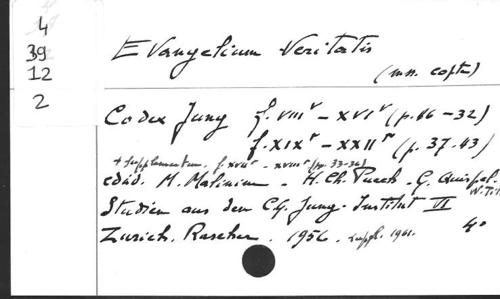 4
39
12
2
Evangelium Veritatis
(mss. copte)
Codex Jung f. VIIIv - XVIv (p. 16-32)
f. XIXr - XXIIr (p. 37-43)
+ supplementum. f. XVIIr - XVIIIv (pp. 33-36)
edid. M. Malinine - H. Ch. Puech - G. Quispel.
W. Till
Studien aus dem C.G. Jung-Institut VI
Zürich. Rascher. 1956. suppl. 1961. 4°